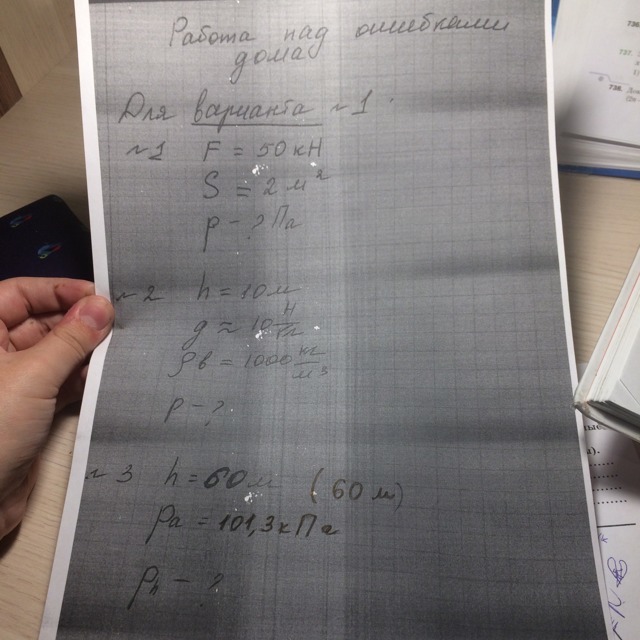 Работа над ошибками
дома
Для варианта №1
№1 F = 50 кН
S = 2 м²
р - ? Па
№2 h = 10 м
g ≈ 10 Н/кг
ρв = 1000 кг/м³
Р - ?
№3 h = 60 м (60 м)
Pa = 101,3 кПа
Ph - ?